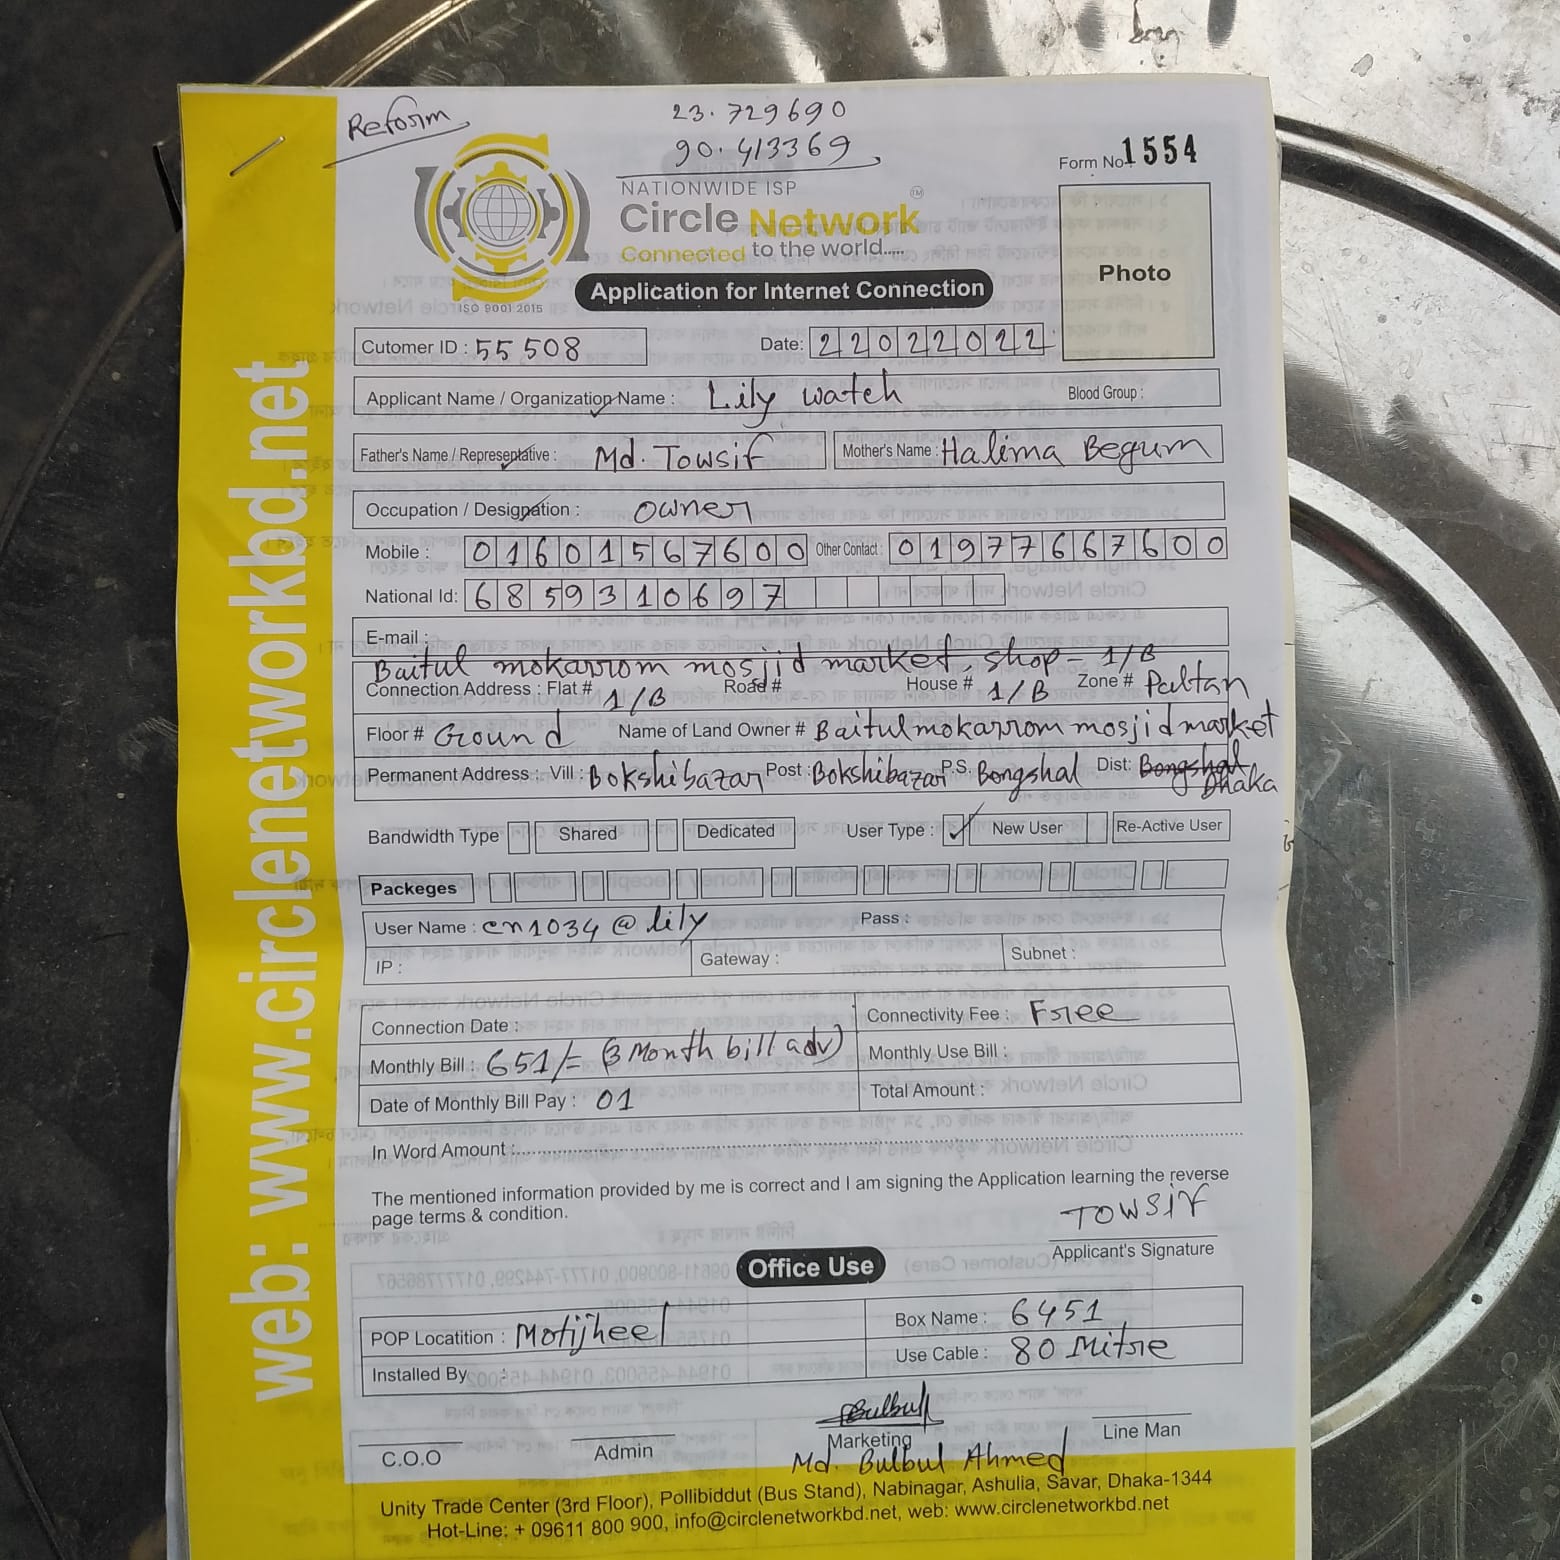 Reform
23.729690
90.413369
Form No. 1554
NATIONWIDE ISP
Circle Network TM
Connected to the world.....
ISO 9001:2015
Photo
Application for Internet Connection
Cutomer ID : 55508 Date: 22022022
Applicant Name / Organization Name : Lily watch Blood Group :
Father's Name / Representative : Md. Towsif Mother's Name : Halima Begum
Occupation / Designation : owner
Mobile : 01601567600 Other Contact : 01977667600
National Id: 6859310697
E-mail :
Baitul mokarrom mosjid market, shop - 1/B
Connection Address : Flat # 1/B Road # House # 1/B Zone # Paltan
Floor # Ground Name of Land Owner # Baitulmokarrom mosjid market
Permanent Address : Vill : Bokshibazar Post : Bokshibazar P.S. Bongshal Dist: Bongshal
Dhaka
Bandwidth Type Shared Dedicated User Type : ✓ New User Re-Active User
Packeges
User Name : cn1034@lily Pass :
IP : Gateway : Subnet :
Connection Date : Connectivity Fee : Free
Monthly Bill : 651/= (3 Month bill adv) Monthly Use Bill :
Date of Monthly Bill Pay : 01 Total Amount :
In Word Amount :
The mentioned information provided by me is correct and I am signing the Application learning the reverse
page terms & condition.
TOWSIF
Applicant's Signature
Office Use
POP Locatition : Motijheel Box Name : 6451
Installed By : Use Cable : 80 Mitre
Bulbul
C.O.O Admin Marketing Line Man
Md. Bulbul Ahmed
Unity Trade Center (3rd Floor), Pollibiddut (Bus Stand), Nabinagar, Ashulia, Savar, Dhaka-1344
Hot-Line: + 09611 800 900, info@circlenetworkbd.net, web: www.circlenetworkbd.net
web: www.circlenetworkbd.net